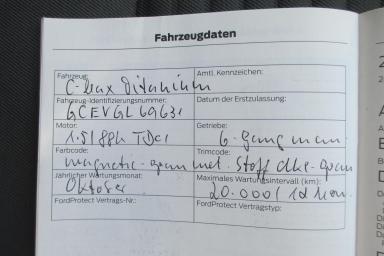 Fahrzeugdaten
Fahrzeug: Amtl. Kennzeichen:
C-Max Titanium
Fahrzeug-Identifizierungsnummer: Datum der Erstzulassung:
GCEVGL69631
Motor: Getriebe:
1.5l 88k TDCi 6-gang man.
Farbcode: Trimcode:
magnetic-grau met. Stoff
Jährlicher Wartungsmonat: Maximales Wartungsintervall (km):
Oktober 20.000
FordProtect Vertrags-Nr.: FordProtect Vertragstyp: